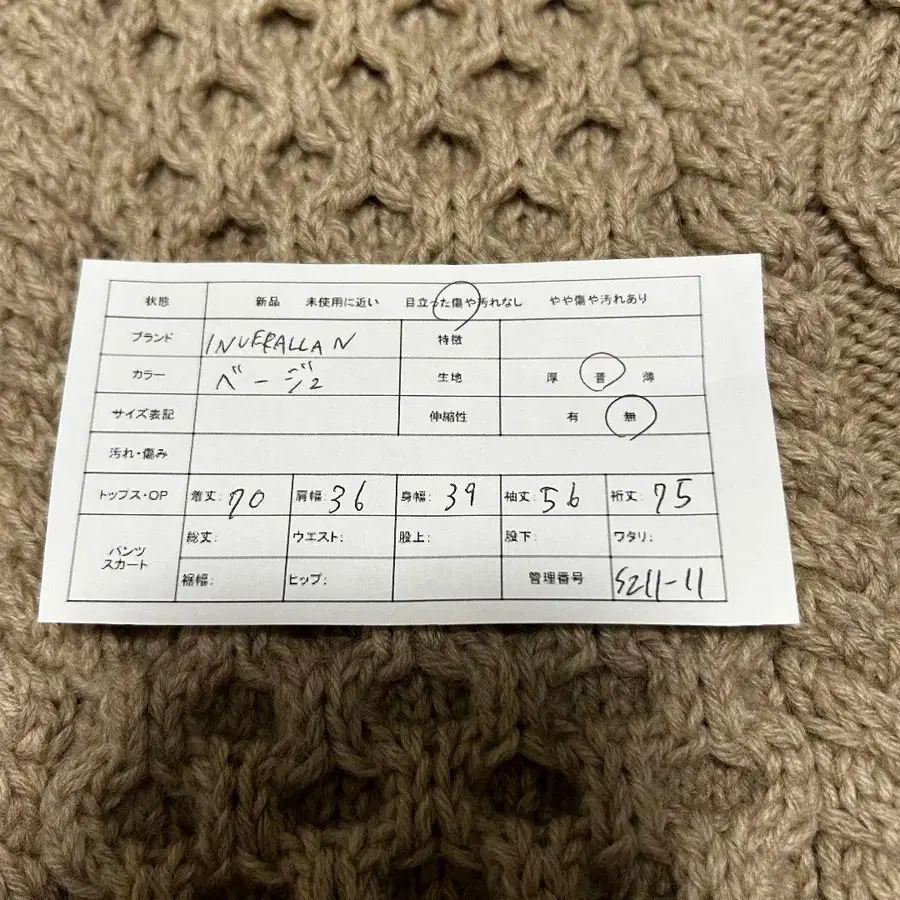 状態 新品 未使用に近い 目立った傷や汚れなし やや傷や汚れあり
ブランド INVERALLAN 特徴
カラー ベージュ 生地 厚 普 薄
サイズ表記 伸縮性 有 無
汚れ・傷み
トップス・OP 着丈: 70 肩幅: 36 身幅: 39 袖丈: 56 裄丈: 75
パンツ スカート 総丈: ウエスト: 股上: 股下: ワタリ:
裾幅: ヒップ: 管理番号 S211-11